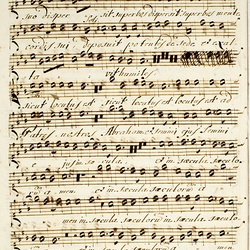 suo disper sit superbos dispersit superbos mente
cordis sui deposuit potentes de sede et exal
ta vit humiles
sicut locutus est sicut locutus est locutus est ad
Patres nostros Abraham et semini ejus semini
ejus in sæcula et in sæcula sæculo
a men et in sæcula sæculorum a
men in sæcula sæculorum in sæcula sæculo